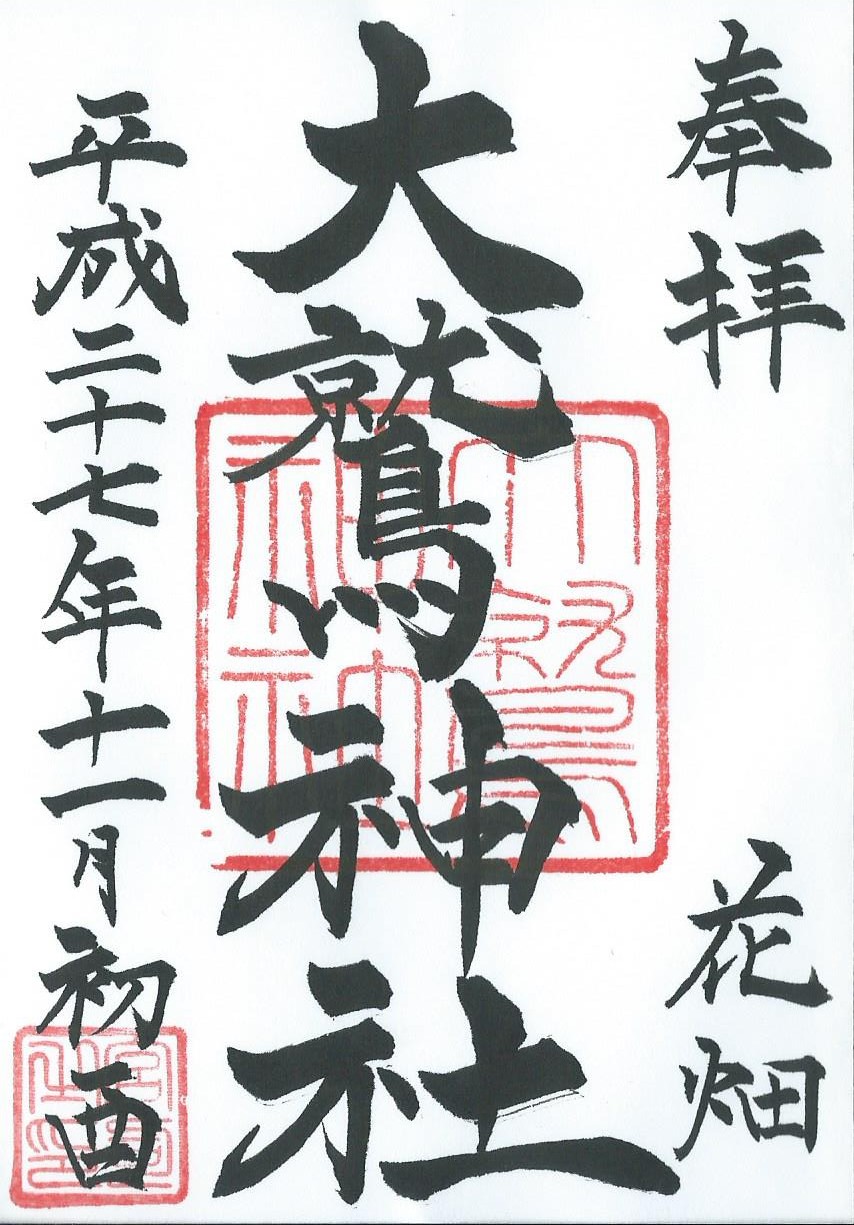 奉拝
花畑
大鷲神社
大鷲神社
平成二十七年十一月初酉